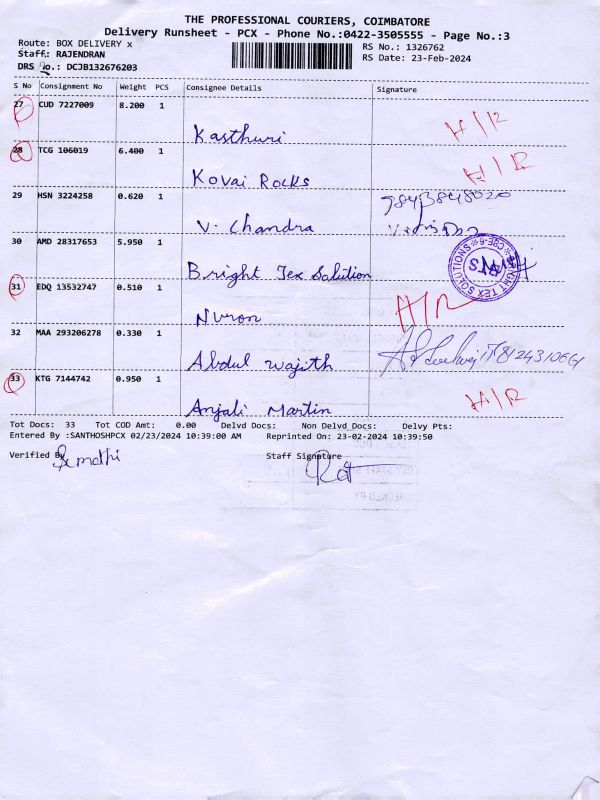 THE PROFESSIONAL COURIERS, COIMBATORE
Delivery Runsheet - PCX - Phone No.:0422-3505555 - Page No.:3
Route: BOX DELIVERY x
RS No.: 1326762
Staff.: RAJENDRAN
RS Date: 23-Feb-2024
DRS No.: DCJB132676203
S No Consignment No Weight PCS Consignee Details Signature
27 CUD 7227009 8.200 1
Kasthuri H/R
28 TCG 106019 6.400 1
Kovai Rocks H/R
29 HSN 3224258 0.620 1
V. Chandra
30 AMD 28317653 5.950 1
Bright Tex Solution
31 EDQ 13532747 0.510 1
Nuron H/R
32 MAA 293206278 0.330 1
Abdul wajith
33 KTG 7144742 0.950 1
Anjali Martin H/R
Tot Docs: 33 Tot COD Amt: 0.00 Delvd Docs: Non Delvd Docs: Delvy Pts:
Entered By :SANTHOSHPCX 02/23/2024 10:39:00 AM Reprinted On: 23-02-2024 10:39:50
Verified By Staff Signature